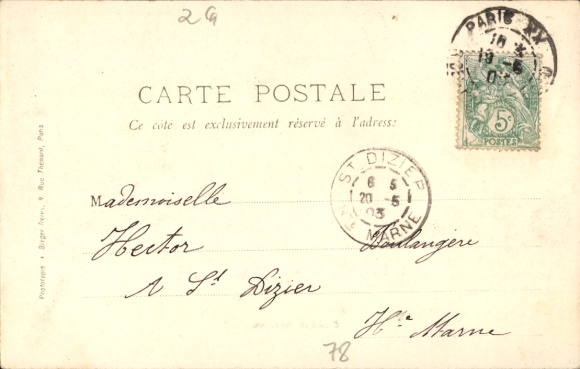 2G
PARIS XX
18
19 -5
03
5c
POSTES
CARTE POSTALE
Ce côté est exclusivement réservé à l'adresse
ST DIZIER
6 5
20 -5
03
Hte MARNE
Mademoiselle
Hector Boulangère
A St Dizier
Hte Marne
78
Bergeret, 9 Rue Thénard, Paris